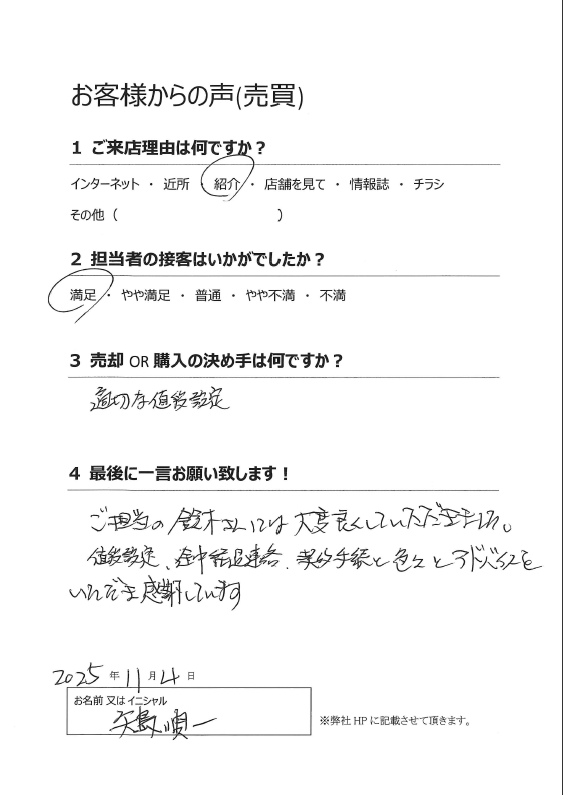 お客様からの声(売買)
1 ご来店理由は何ですか？
インターネット ・ 近所 ・ 紹介 ・ 店舗を見て ・ 情報誌 ・ チラシ
その他（　　　　　　　　　　　）
2 担当者の接客はいかがでしたか？
満足 ・ やや満足 ・ 普通 ・ やや不満 ・ 不満
3 売却 OR 購入の決め手は何ですか？
適切な値段設定
4 最後に一言お願い致します！
ご担当の鈴木さんには大変良くしていただきました。
値段設定、途中経過連絡、契約手続と色々とアドバイスを
いただき感謝しています
2025 年 11 月 4 日
お名前 又は イニシャル
矢島 順一
※弊社 HP に記載させて頂きます。